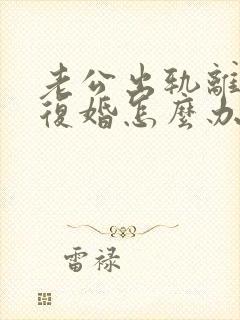 老公出軌離
復婚怎麼办
雷禄